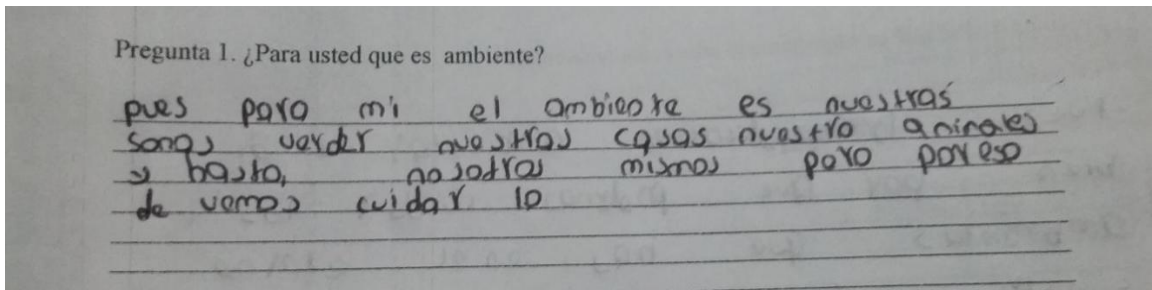 Pregunta 1. ¿Para usted que es ambiente?
pues para mi el ambiente es nuestras
sonas verder nuestras casas nuestro animales
y hasta, nosotros mismos pero por eso
de vemos cuidar lo